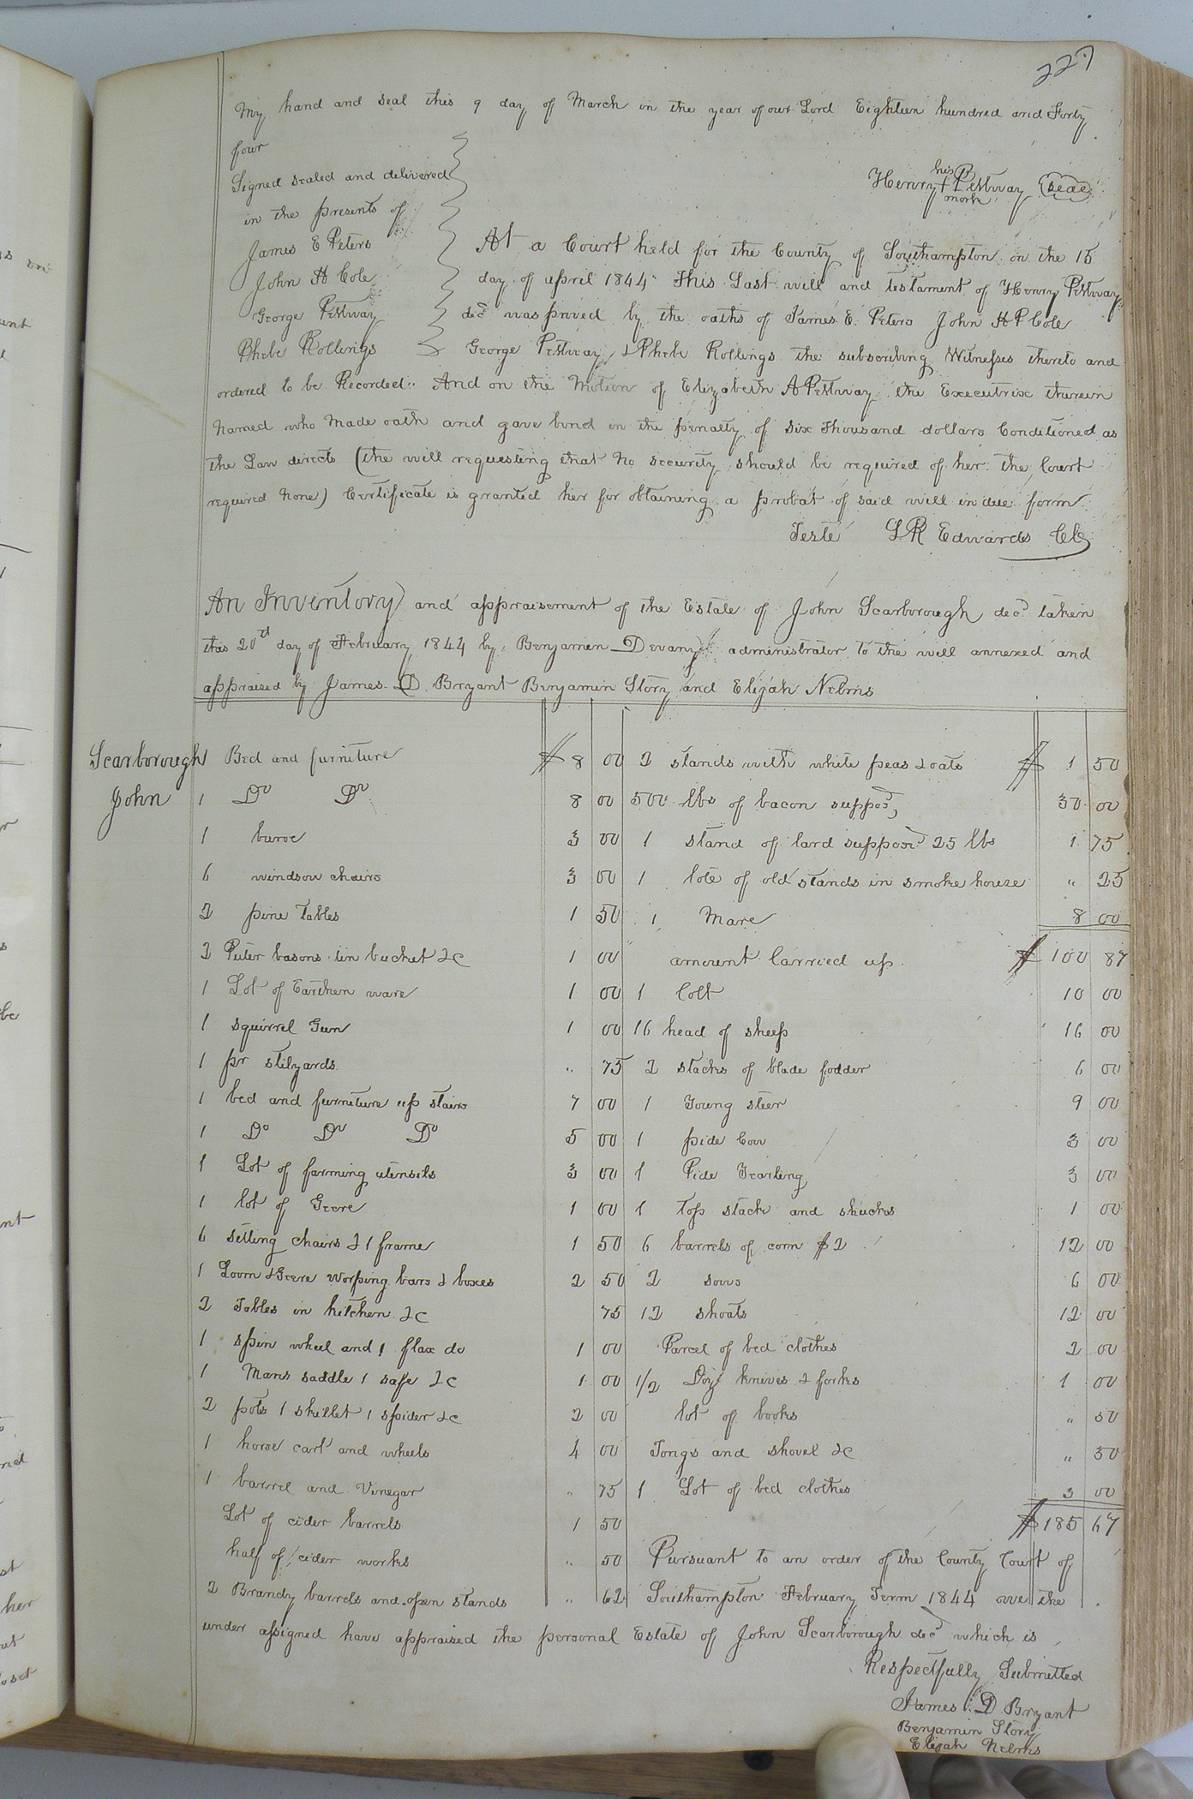 227
My hand and seal this 9 day of March in the year of our Lord Eighteen hundred and Forty
four
Signed sealed and delivered
in the presents of
James E Peters
John H Cole
George Pettway
Phebe Rollings
his
Henry + Pettway seal
mark
At a Court held for the County of Southampton on the 15
day of april 1844 This Last will and testament of Henry Pettway
decd was proved by the oaths of James E. Peters John H P Cole
George Pettway & Phebe Rollings the subscribing Witnesses thereto and
ordered to be Recorded. And on the Motion of Elizabeth A Pettway the Executrix therein
Named who Made oath and gave bond in the penalty of six thousand dollars Conditioned as
the Law directs (the will requesting that No security should be required of her the Court
required None) Certificate is granted her for obtaining a probat of said will in due form
Teste L R Edwards CC
An Inventory and appraisement of the Estate of John Scarborough decd taken
this 20d day of February 1844 by Benjamin Devany administrator to the will annexed and
appraised by James D Bryant Benjamin Story and Elijah Nelms
Scarborough
John
Bed and furniture $ 8 00
1 Do Do 8 00
1 buroe 3 00
6 windsow chairs 3 00
2 pine tables 1 50
2 Puter basons tin bucket &c 1 00
1 Lot of Earthen ware 1 00
1 squirrel Gun 1 00
1 pr stilyards " 75
1 bed and furniture up stairs 7 00
1 Do Do Do 5 00
1 Lot of farming utensils 3 00
1 lot of Geere 1 00
6 setting chairs & 1 frame 1 50
1 Loom & Geere worping bars & boxes 2 50
2 Tables in kitchen &c 75
1 spin wheel and 1 flax do 1 00
1 Mans saddle 1 safe &c 1 00
2 pots 1 skillet 1 spider &c 2 00
1 horse cart and wheels 4 00
1 barrel and Vinegar " 75
Lot of cider barrels 1 50
half of cider works " 50
2 Brandy barrels and open stands " 62
2 stands with white peas & oats $ 1 50
500 lbs of bacon supposd 30 00
1 stand of lard supposd 25 lbs 1 75
1 lote of old stands in smoke house " 25
1 Mare 8 00
amount Carried up $ 100 87
1 Colt 10 00
16 head of sheep 16 00
2 stacks of blade fodder 6 00
1 Young steer 9 00
1 pide Cow 3 00
1 Pide Yearling 3 00
1 top stack and shucks 1 00
6 barrels of corn $2 12 00
2 sows 6 00
12 shoats 12 00
Parcel of bed clothes 2 00
1/2 Doz knives & forks 1 00
lot of books " 50
Tongs and shovel &c " 50
1 Lot of bed clothes 3 00
$ 185 67
Pursuant to an order of the County Court of
Southampton February Term 1844 we the
under assigned have appraised the personal Estate of John Scarborough decd which is
Respectfully Submitted
James D Bryant
Benjamin Story
Elijah Nelms